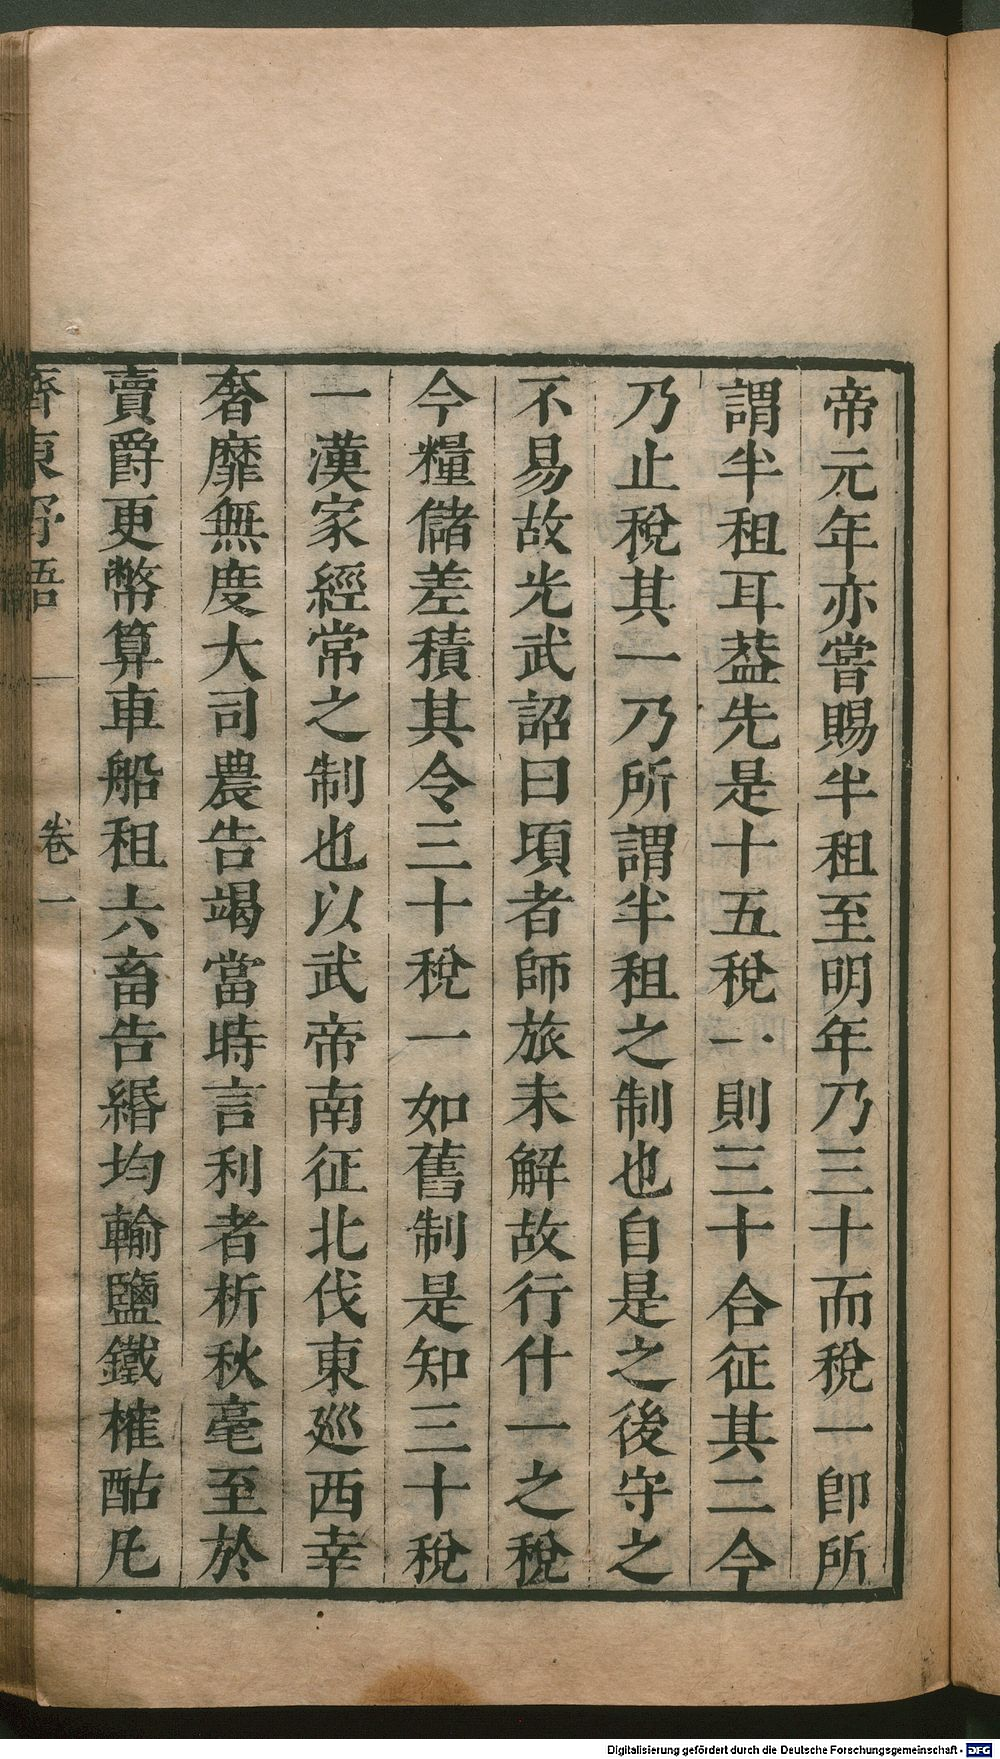 帝元年亦嘗賜半租至明年乃三十而稅一卽所
謂半租耳葢先是十五稅一則三十合征其二今
乃止稅其一乃所謂半租之制也自是之後守之
不易故光武詔曰頃者師旅未解故行什一之稅
今糧儲差積其令三十稅一如舊制是知三十稅
一漢家經常之制也以武帝南征北伐東巡西幸
奢靡無度大司農告竭當時言利者析秋毫至於
賣爵更幣算車船租六畜告緡均輸鹽鐵榷酤凡
齊東野語 卷一
Digitalisierung gefördert durch die Deutsche Forschungsgemeinschaft - DFG